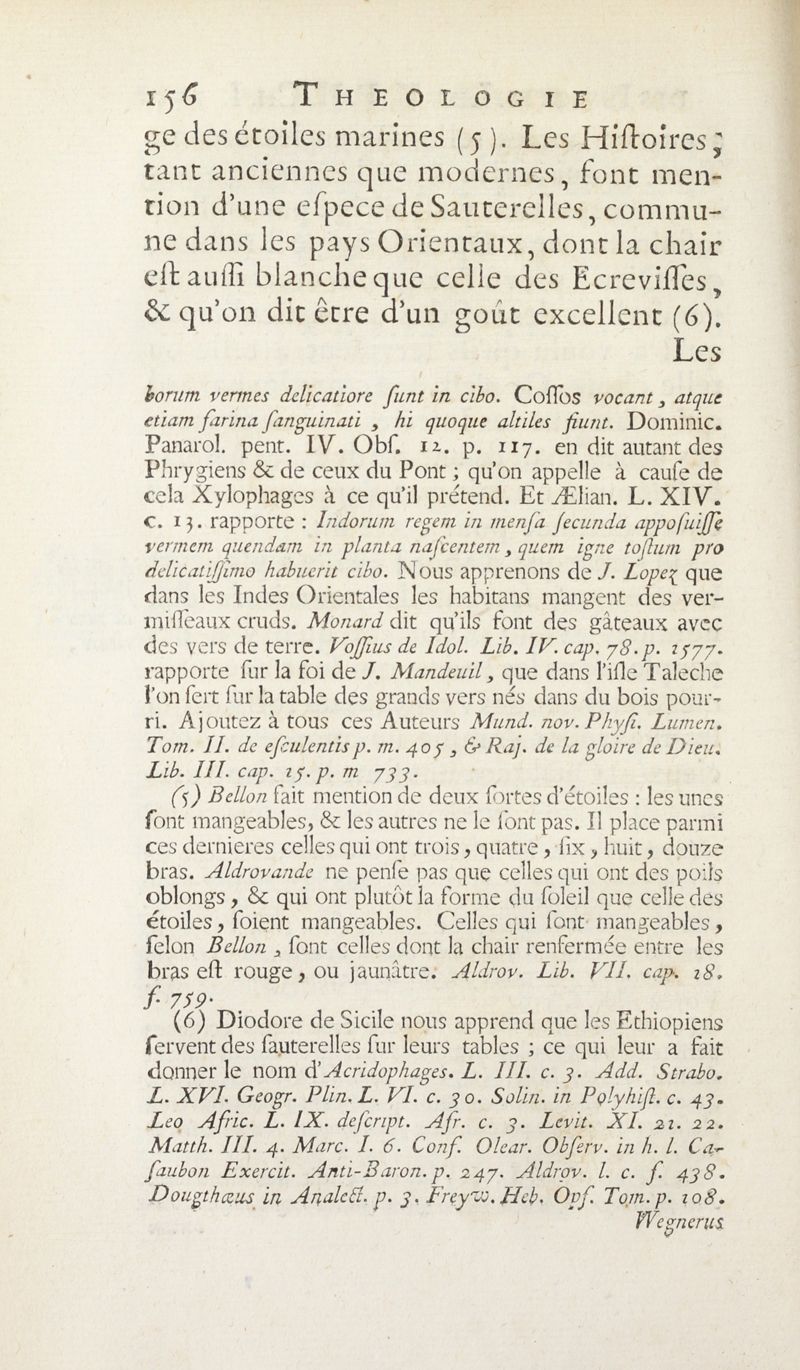 156 THEOLOGIE
ge des étoiles marines (5). Les Hiſtoires,
tant anciennes que modernes, font men-
tion d'une eſpece de Sauterelles, commu-
ne dans les pays Orientaux, dont la chair
eſt auſſi blanche que celle des Ecreviſſes,
& qu'on dit être d'un goût excellent (6).
Les
horum vermes delicatiore ſunt in cibo. Coſſos vocant, atque
etiam farina ſanguinati, hi quoque altiles fiunt. Dominic.
Panarol. pent. IV. Obſ. 12. p. 117. en dit autant des
Phrygiens & de ceux du Pont; qu'on appelle à cauſe de
cela Xylophages à ce qu'il prétend. Et Ælian. L. XIV.
c. 13. rapporte : Indorum regem in menſa ſecunda appoſuiſſe
vermem quendam in planta naſcentem, quem igne toſtum pro
delicatiſſimo habuerit cibo. Nous apprenons de J. Lopez que
dans les Indes Orientales les habitans mangent des ver-
miſſeaux cruds. Monard dit qu'ils font des gâteaux avec
des vers de terre. Voſſius de Idol. Lib. IV. cap. 78. p. 1577.
rapporte ſur la foi de J. Mandeuil, que dans l'iſle Taleche
l'on ſert ſur la table des grands vers nés dans du bois pour-
ri. Ajoutez à tous ces Auteurs Mund. nov. Phyſi. Lumen.
Tom. II. de eſculentis p. m. 405, & Raj. de la gloire de Dieu.
Lib. III. cap. 15. p. m 733.
(5) Bellon fait mention de deux ſortes d'étoiles : les unes
ſont mangeables, & les autres ne le ſont pas. Il place parmi
ces dernieres celles qui ont trois, quatre, ſix, huit, douze
bras. Aldrovande ne penſe pas que celles qui ont des poils
oblongs, & qui ont plutôt la forme du ſoleil que celle des
étoiles, ſoient mangeables. Celles qui ſont mangeables,
ſelon Bellon, ſont celles dont la chair renfermée entre les
bras eſt rouge, ou jaunâtre. Aldrov. Lib. VII. cap. 18.
f. 759.
(6) Diodore de Sicile nous apprend que les Ethiopiens
ſervent des ſauterelles ſur leurs tables ; ce qui leur a fait
donner le nom d'Acridophages. L. III. c. 3. Add. Strabo.
L. XVI. Geogr. Plin. L. VI. c. 30. Solin. in Polyhiſt. c. 43.
Leo Afric. L. IX. deſcript. Afr. c. 3. Levit. XI. 21. 22.
Matth. III. 4. Marc. I. 6. Conf. Olear. Obſerv. in h. l. Ca-
ſaubon Exercit. Anti-Baron. p. 247. Aldrov. l. c. f. 438.
Dougthæus in Analect. p. 3. Freyw. Heb. Opſ. Tom. p. 108.
Wegnerus